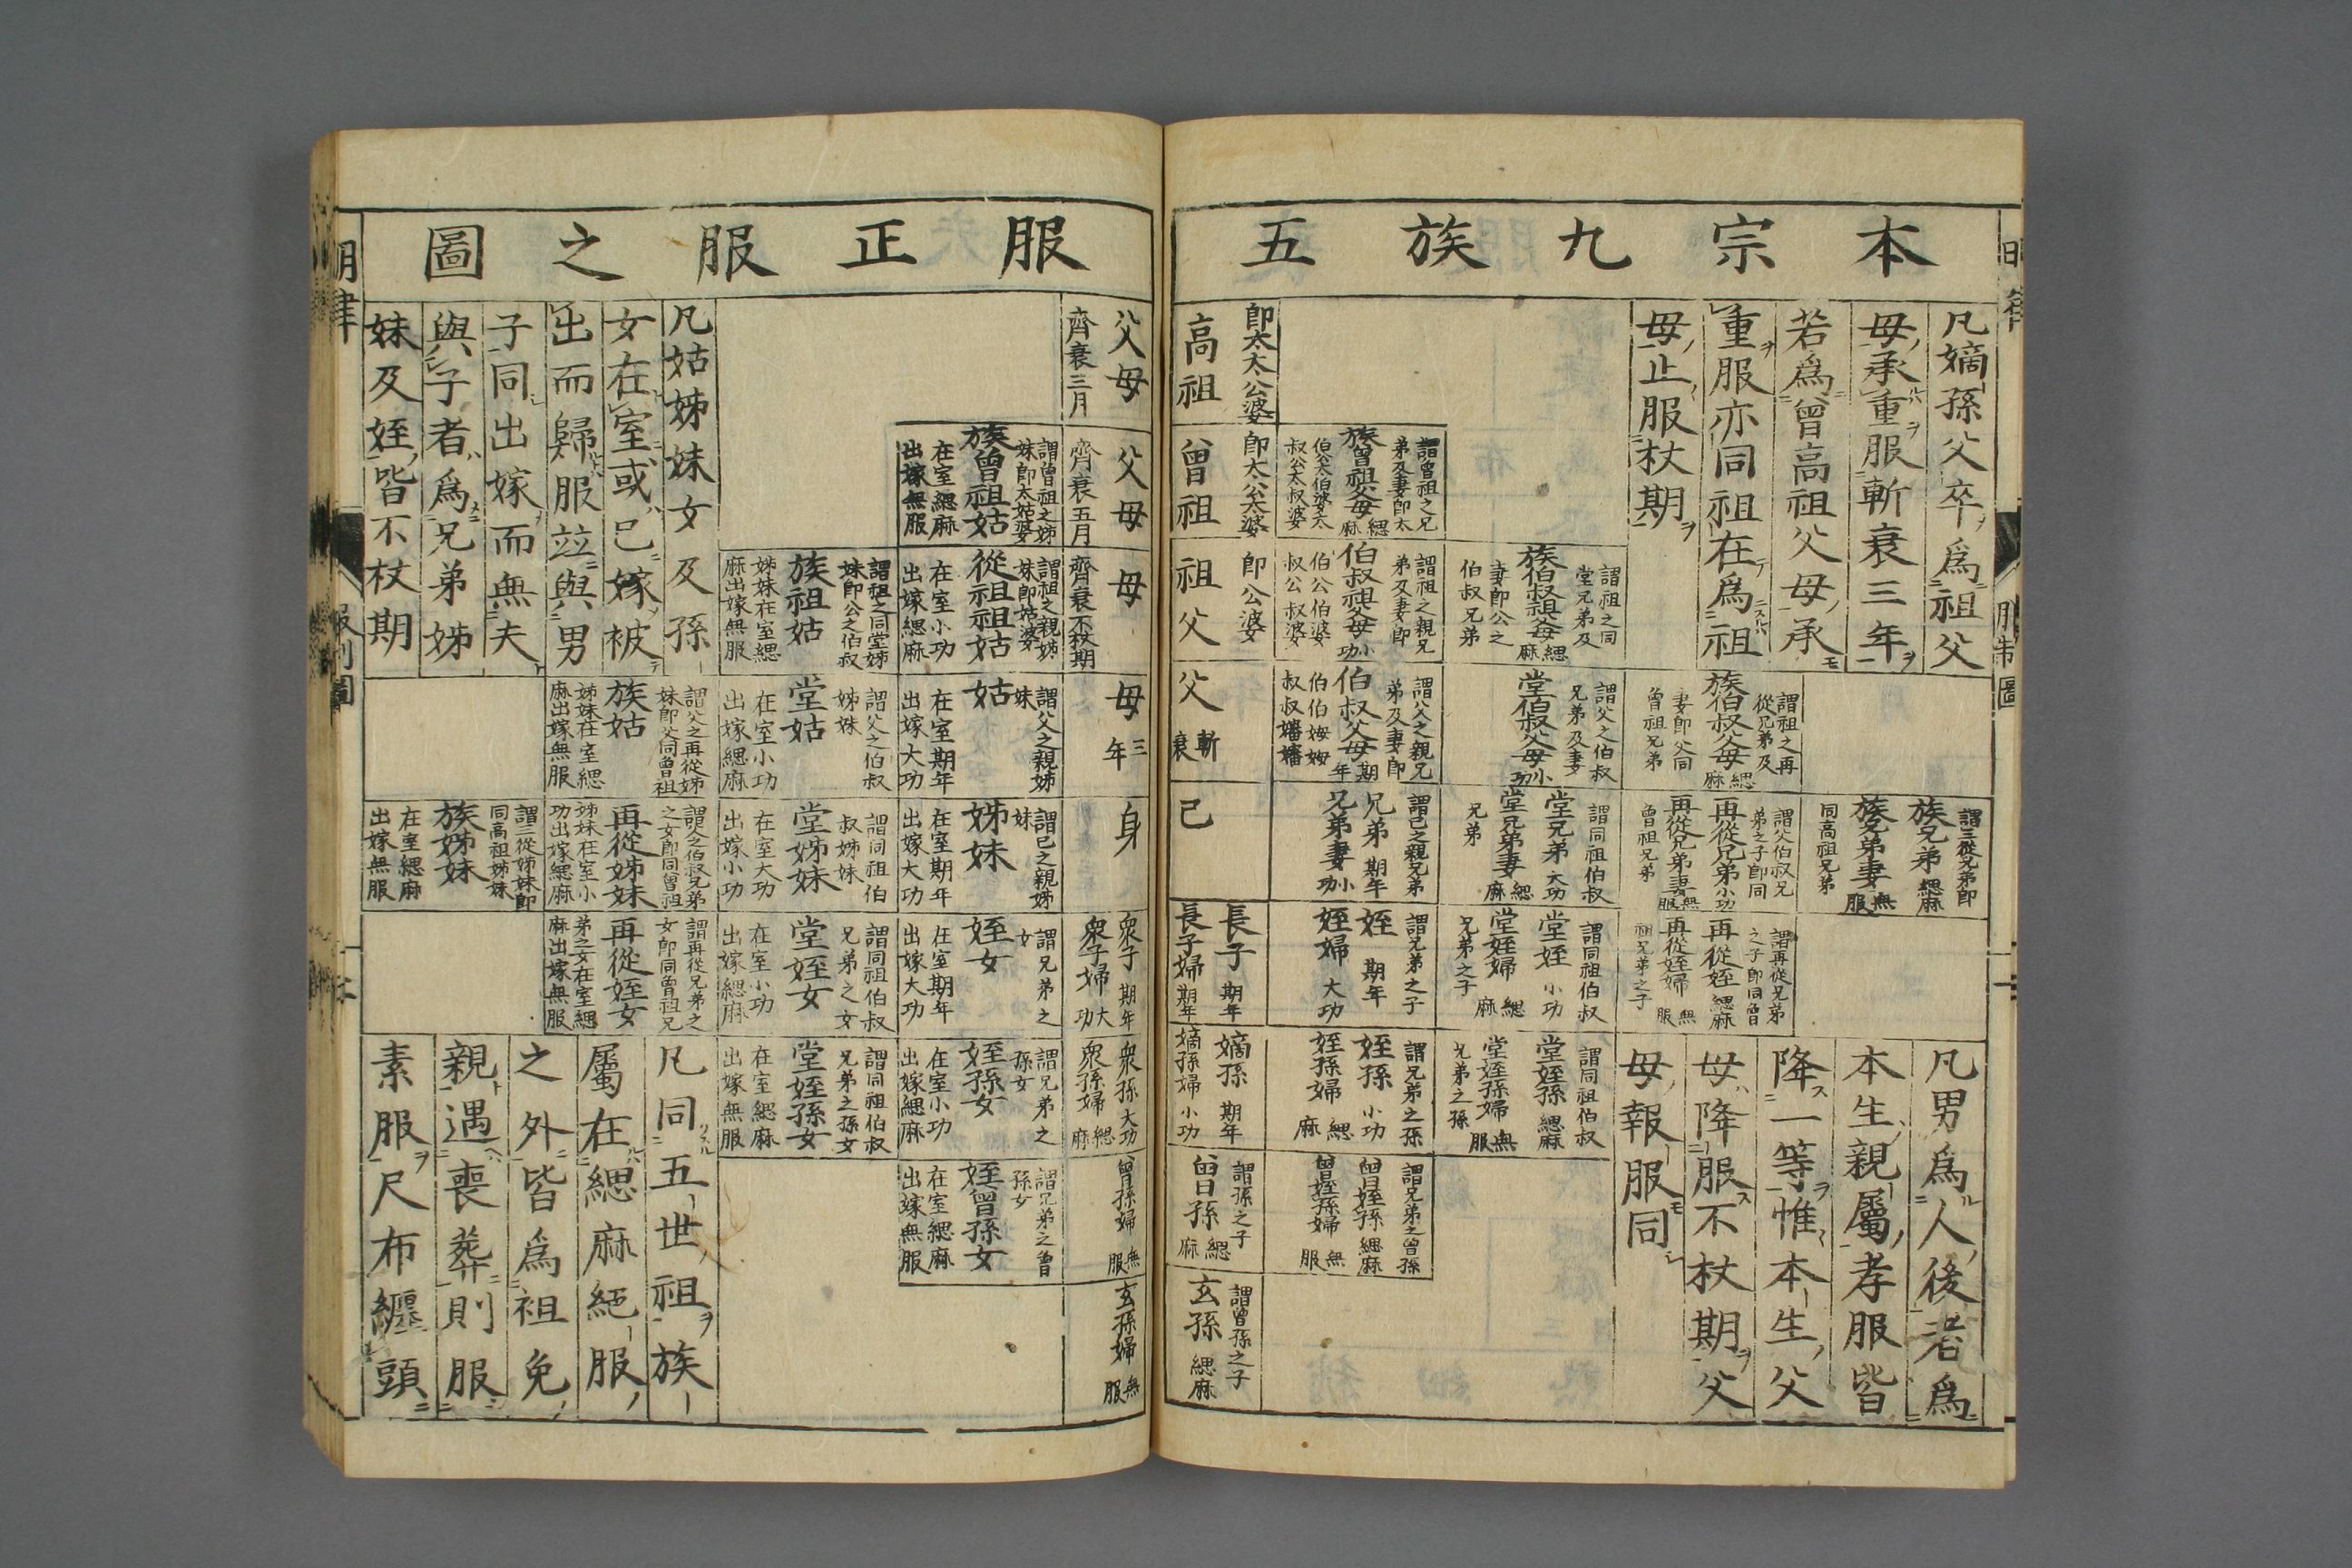 本宗九族五
凡嫡孫父卒爲祖父
母承重服斬衰三年
若爲曾高祖父母承
重服亦同祖在爲祖
母止服杖期
即太太公婆
高祖
謂曾祖之兄
弟及妻即太
族曾祖父母緦麻
伯公太伯婆太
叔公太叔婆
即太公太婆
曾祖
謂祖之同
堂兄弟及
族伯叔祖父母緦麻
妻即公之
伯叔兄弟
謂祖之親兄
弟及妻即
伯叔祖父母小功
伯公伯婆
叔公叔婆
即公婆
祖父
謂祖之再
從兄弟及
族伯叔父母緦麻
妻即父同
曾祖兄弟
謂父之伯叔
兄弟及妻
堂伯叔父母小功
謂父之親兄
弟及妻即
伯叔父母期年
伯伯姆姆
叔叔嬸嬸
父斬衰
謂三從兄弟即
族兄弟緦麻
族兄弟妻無服
同高祖兄弟
謂父伯叔兄
弟之子即同
再從兄弟小功
再從兄弟妻無服
曾祖兄弟
謂同祖伯叔
堂兄弟大功
堂兄弟妻緦麻
兄弟
謂己之親兄弟
兄弟期年
兄弟妻小功
己
謂再從兄弟
之子即同曾
再從姪緦麻
再從姪婦無服
祖兄弟之子
謂同祖伯叔
堂姪小功
堂姪婦緦麻
兄弟之子
謂兄弟之子
姪期年
姪婦大功
長子期年
長子婦期年
謂同祖伯叔
堂姪孫緦麻
堂姪孫婦無服
兄弟之孫
謂兄弟之孫
姪孫小功
姪孫婦緦麻
嫡孫期年
嫡孫婦小功
謂兄弟之曾孫
曾姪孫緦麻
曾姪孫婦無服
謂孫之子
曾孫緦麻
謂曾孫之子
玄孫緦麻
凡男爲人後者爲
本生親屬孝服皆
降一等惟本生父
母降服不杖期父
母報服同
服正服之圖
父母
齊衰三月
父母
齊衰五月
謂曾祖之姊
妹即太姑婆
族曾祖姑
在室緦麻
出嫁無服
母
齊衰不杖期
謂祖之親姊
妹即姑婆
從祖祖姑
在室小功
出嫁緦麻
謂祖之同堂姊
妹即公之伯叔
族祖姑
姊妹在室緦
麻出嫁無服
母三年
謂父之親姊
妹
姑
在室期年
出嫁大功
謂父之伯叔
姊妹
堂姑
在室小功
出嫁緦麻
謂父之再從姊
妹即父同曾祖
族姑
姊妹在室緦
麻出嫁無服
身
謂己之親姊
妹
姊妹
在室期年
出嫁大功
謂同祖伯
叔姊妹
堂姊妹
在室大功
出嫁小功
謂父之伯叔兄弟
之女即同曾祖
再從姊妹
姊妹在室小
功出嫁緦麻
謂三從姊妹即
同高祖姊妹
族姊妹
在室緦麻
出嫁無服
衆子期年
衆子婦大功
謂兄弟之
女
姪女
在室期年
出嫁大功
謂同祖伯叔
兄弟之女
堂姪女
在室小功
出嫁緦麻
謂再從兄弟之
女即同曾祖兄
再從姪女
弟之女在室緦
麻出嫁無服
衆孫大功
衆孫婦緦麻
謂兄弟之
孫女
姪孫女
在室小功
出嫁緦麻
謂同祖伯叔
兄弟之孫女
堂姪孫女
在室緦麻
出嫁無服
曾孫婦無服
謂兄弟之曾
孫女
姪曾孫女
在室緦麻
出嫁無服
玄孫婦無服
凡姑姊妹女及孫
女在室或已嫁被
出而歸服並與男
子同出嫁而無夫
與子者爲兄弟姊
妹及姪皆不杖期
凡同五世祖族
屬在緦麻絕服
之外皆爲袒免
親遇喪葬則服
素服尺布纏頭